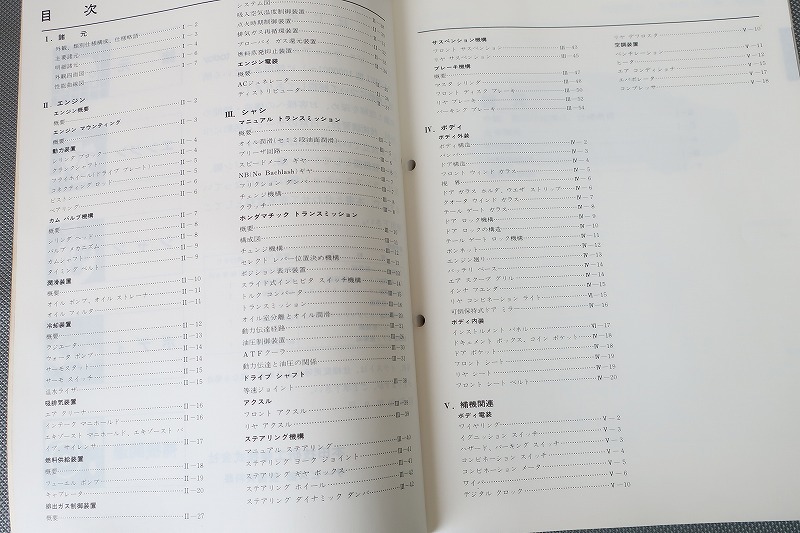 目 次
I. 諸 元
外観, 類別仕様構成, 仕様略語 I-2
主要諸元 I-4
明細諸元 I-4
外観四面図 I-6
性能曲線図 I-7
II. エンジン
エンジン概要
概要 II-2
エンジン マウンティング
概要 II-3
動力装置
シリンダ ブロック II-4
クランクシャフト II-4
フライホイール(ドライブ プレート) II-5
コネクティング ロッド II-6
ピストン II-6
ピストン リング II-6
カム バルブ機構
概要 II-7
シリンダ ヘッド II-8
バルブ メカニズム II-8
カムシャフト II-9
タイミング ベルト II-9
潤滑装置
概要 II-10
オイル ポンプ, オイル ストレーナ II-11
オイル フィルタ II-11
冷却装置
概要 II-12
ラジエータ II-13
ウォータ ポンプ II-14
サーモスタット II-14
サーモ スイッチ II-15
温水ライザ II-15
吸排気装置
エア クリーナ II-16
インテーク マニホールド II-16
エキゾースト マニホールド, エキゾースト パ
イプ, サイレンサ II-17
燃料供給装置
概要 II-18
フューエル ポンプ II-19
キャブレータ II-20
排出ガス制御装置
概要 II-27
システム図
吸入空気温度制御装置
点火時期制御装置
排気ガス再循環装置
ブローバイ ガス還元装置
燃料蒸発抑止装置
エンジン電装
概要
ACジェネレータ
ディストリビュータ
III. シャシ
マニュアル トランスミッション
概要
オイル潤滑(セミ2段油面潤滑)
ブリーザ回路
スピードメータ ギヤ
NB(No Bachlash)ギヤ
フリクション ダンパ
チェンジ機構
クラッチ
ホンダマチック トランスミッション
概要
構成図
チェンジ機構
セレクト レバー位置決め機構
ポジション表示装置
スライド式インヒビタ スイッチ機構
トルク コンバータ
トランスミッション
オイル室分離とオイル潤滑
動力伝達経路
油圧制御装置
ATFクーラ
動力伝達と油圧の関係
ドライブ シャフト
等速ジョイント III-38
アクスル
フロント アクスル III-39
リヤ アクスル III-39
ステアリング機構
マニュアル ステアリング III-40
ステアリング ヨーク ジョイント III-41
ステアリング ギヤ ボックス III-41
ステアリング ホイール III-42
ステアリング ダイナミック ダンパ III-42
サスペンション機構
フロント サスペンション III-43
リヤ サスペンション III-45
ブレーキ機構
概要 III-47
マスタ シリンダ III-48
フロント ディスク ブレーキ III-50
リヤ ブレーキ III-52
パーキング ブレーキ III-54
IV. ボディ
ボディ外装
ボディ構造 IV-2
バンパ IV-3
ドア構造 IV-4
フロント ウィンド ガラス IV-5
視 界 IV-6
ドア ガラス ホルダ, ウエザ ストリップ IV-6
クオータ ウインド ガラス IV-7
テール ゲート ガラス IV-8
ドア ロック機構 IV-9
ドア ロックの構造 IV-10
テール ゲート ロック機構 IV-11
ボンネット IV-12
エンジン廻り IV-13
バッテリ ベース IV-14
エア スクープ グリル IV-14
インナ フェンダ IV-15
リヤ コンビネーション ライト VI-15
可倒保持式ドア ミラ IV-16
ボディ内装
インストルメント パネル VI-17
ドキュメント ボックス, コイン ポケット IV-18
ドア ポケット IV-18
フロント シート IV-19
リヤ シート IV-19
フロント シート ベルト IV-20
V. 補機関連
ボディ電装
ワイヤリング V-2
イグニッション スイッチ V-3
ハザード, パーキング スイッチ V-3
コンビネーション スイッチ V-4
コンビネーション メータ V-5
ワイパ V-6
デジタル クロック V-10
リヤ デフロスタ V-10
空調装置
ベンチレーション V-11
ヒータ V-12
エア コンディショナ V-15
エバポレータ V-17
コンプレッサ V-18